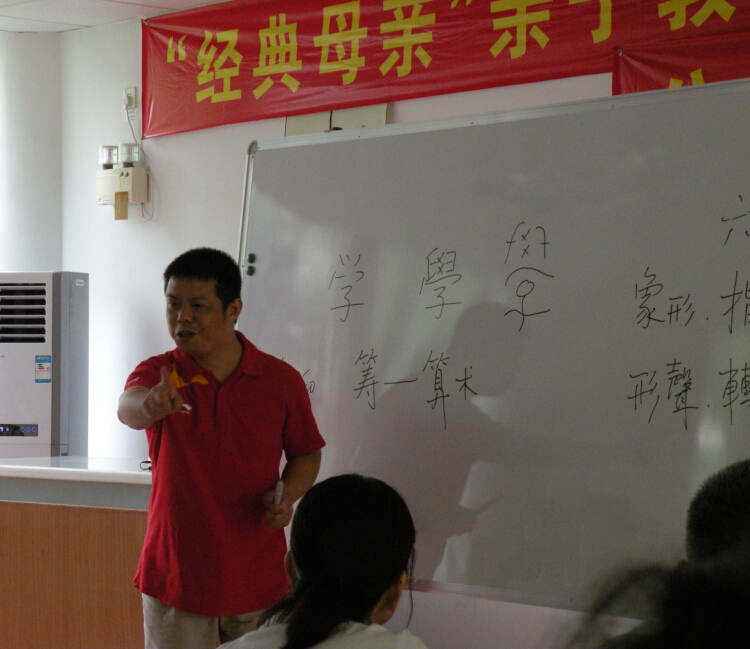 “经典母亲”亲子教
学 學
六
象形.指
籌一算术
形聲.轉